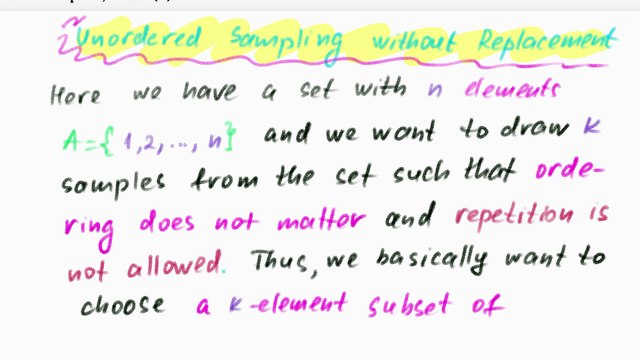 Unordered Sampling without Replacement
Here we have a set with n elements
A={1,2,...,n} and we want to draw k
samples from the set such that orde-
ring does not matter and repetition is
not allowed. Thus, we basically want to
choose a k-element subset of